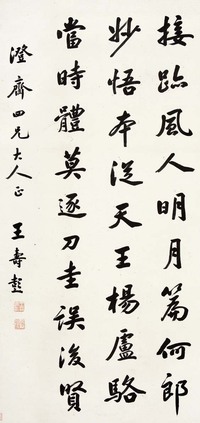 接跡風人明月篇何郎
妙悟本從天王楊盧駱
當時體莫逐刀圭誤後賢
澄齋四兄大人正
王壽彭